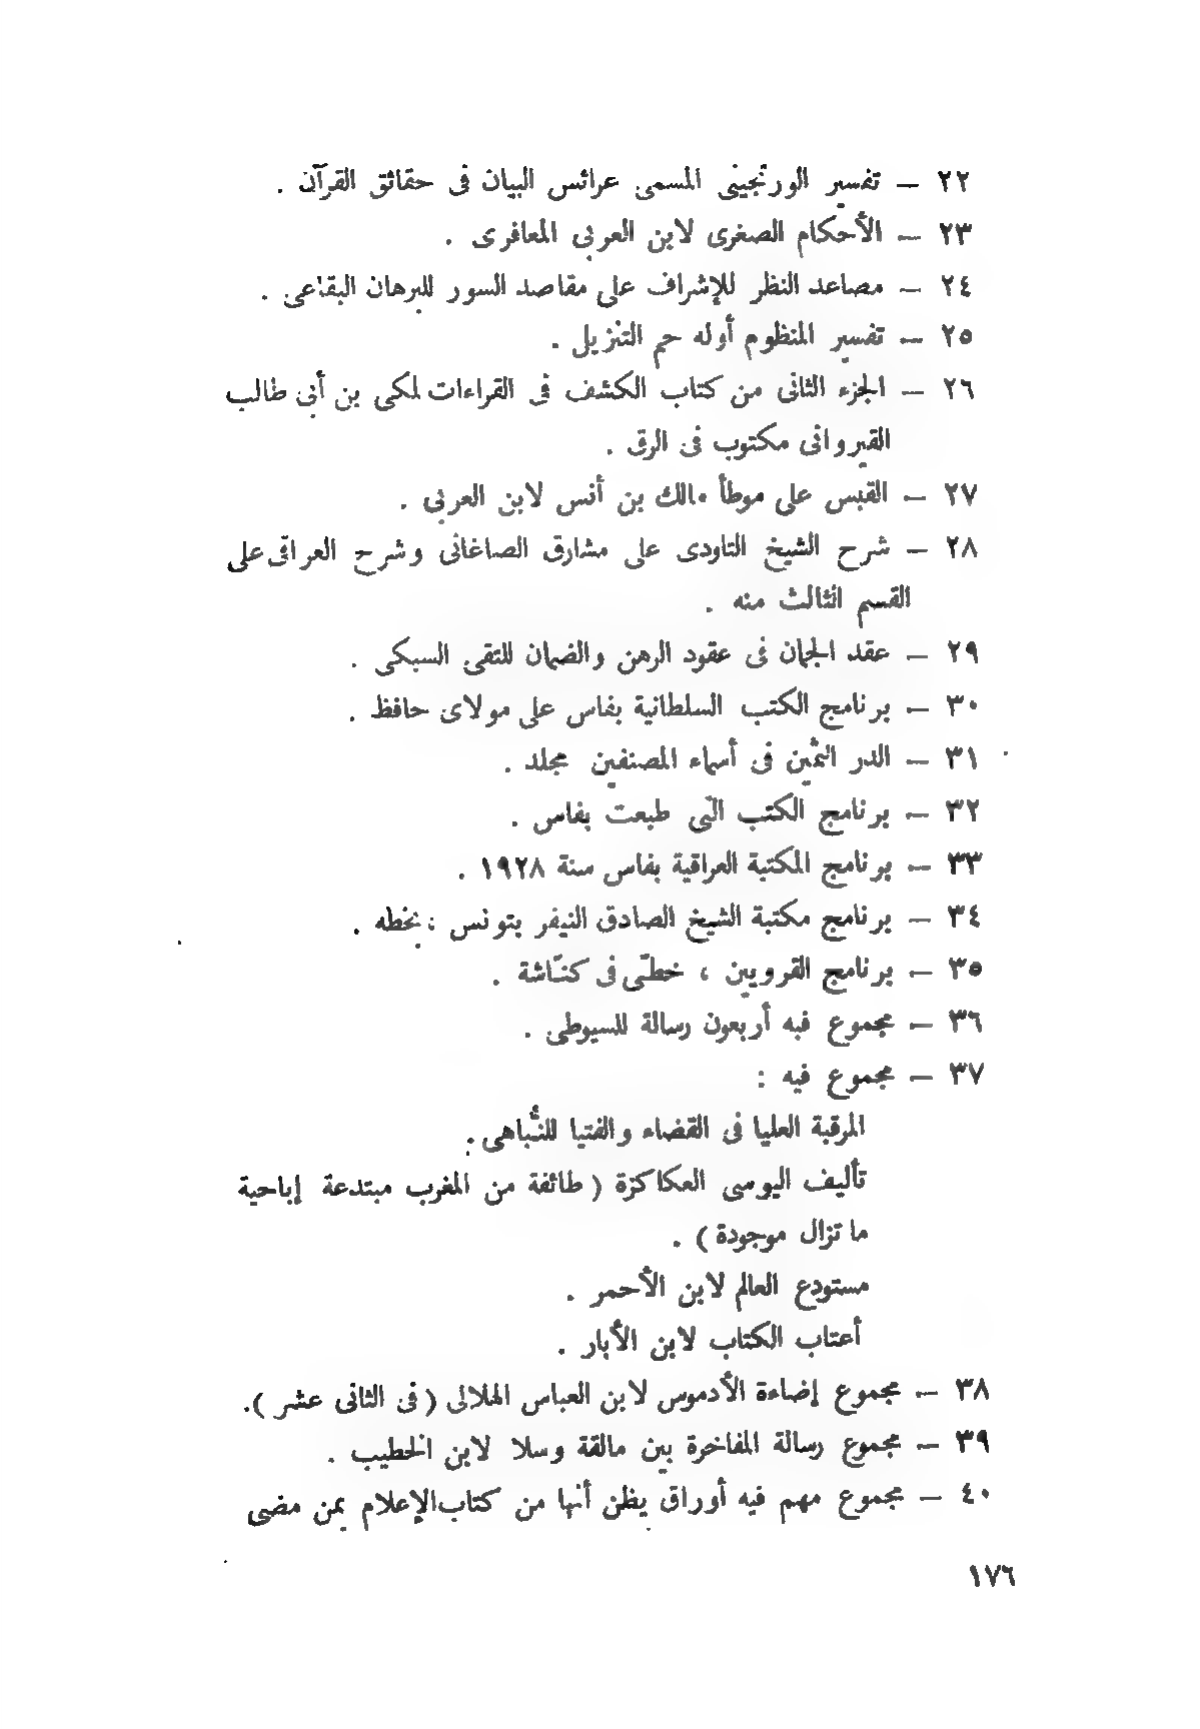 ٢٢ – تفسير الورتجيني المسمى عرائس البيان فى حقائق القرآن .
٢٣ – الأحكام الصغرى لابن العربي المعافرى .
٢٤ – مصاعد النظر للإشراف على مقاصد السور للبرهان البقاعى .
٢٥ – تفسير المنظوم أوله حم التنزيل .
٢٦ – الجزء الثانى من كتاب الكشف فى القراءات لمكى بن أبي طالب
القيروانى مكتوب فى الرق .
٢٧ – القبس على موطأ مالك بن أنس لابن العربي .
٢٨ – شرح الشيخ التاودى على مشارق الصاغانى وشرح العراقى على
القسم الثالث منه .
٢٩ – عقد الجمان فى عقود الرهن والضمان للتقى السبكى .
٣٠ – برنامج الكتب السلطانية بفاس على مولاى حافظ .
٣١ – الدر الثمين فى أسماء المصنفين مجلد .
٣٢ – برنامج الكتب التى طبعت بفاس .
٣٣ – برنامج المكتبة العراقية بفاس سنة ١٩٢٨ .
٣٤ – برنامج مكتبة الشيخ الصادق النيفر بتونس ؛ بخطه .
٣٥ – برنامج القرويين ، خطّى فى كنّاشة .
٣٦ – مجموع فيه أربعون رسالة للسيوطى .
٣٧ – مجموع فيه :
المرقبة العليا فى القضاء والفتيا للنُّباهى .
تأليف اليوسى العكاكزة ( طائفة من المغرب مبتدعة إباحية
ما تزال موجودة ) .
مستودع العالم لابن الأحمر .
أعتاب الكتاب لابن الأبار .
٣٨ – مجموع إضاءة الأدموس لابن العباس الهلالى ( فى الثانى عشر ) .
٣٩ – مجموع رسالة المفاخرة بين مالقة وسلا لابن الخطيب .
٤٠ – مجموع مهم فيه أوراق يظن أنها من كتاب الإعلام بمن مضى
١٧٦